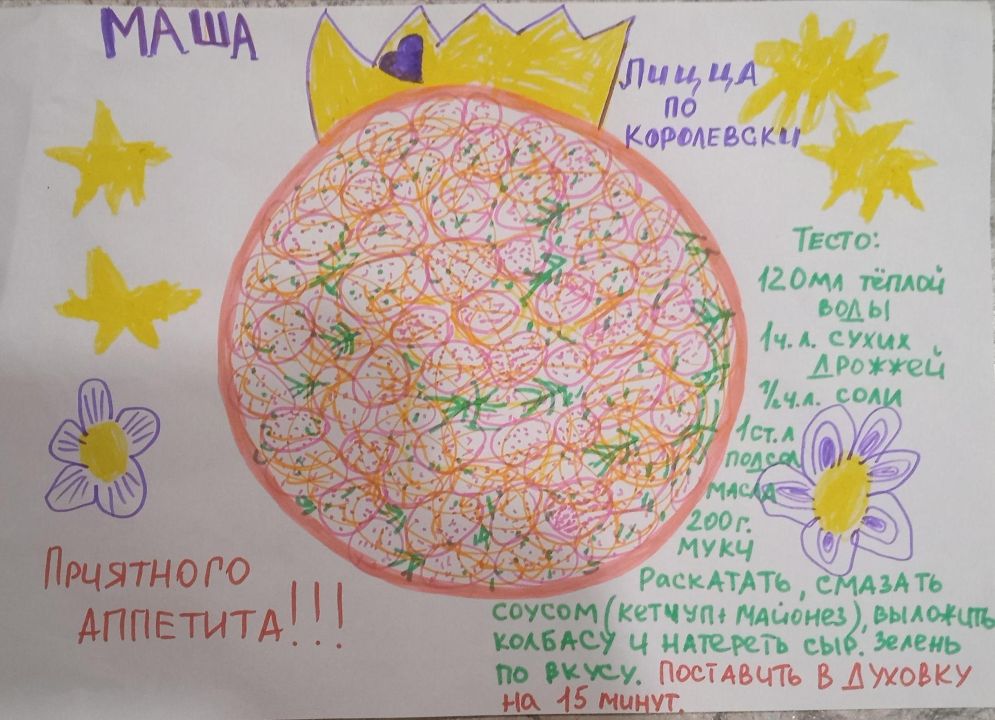 МАША
ПИЦЦА
ПО
КОРОЛЕВСКИ
ТЕСТО:
120мл тёплой
воды
1 ч.л. сухих
дрожжей
1/2 ч.л. соли
1 ст.л
подсол
масла
200 г.
муки
Раскатать, смазать
соусом (кетчуп + майонез), выложить
колбасу и натереть сыр. Зелень
по вкусу. Поставить в духовку
на 15 минут.
Приятного
аппетита!!!